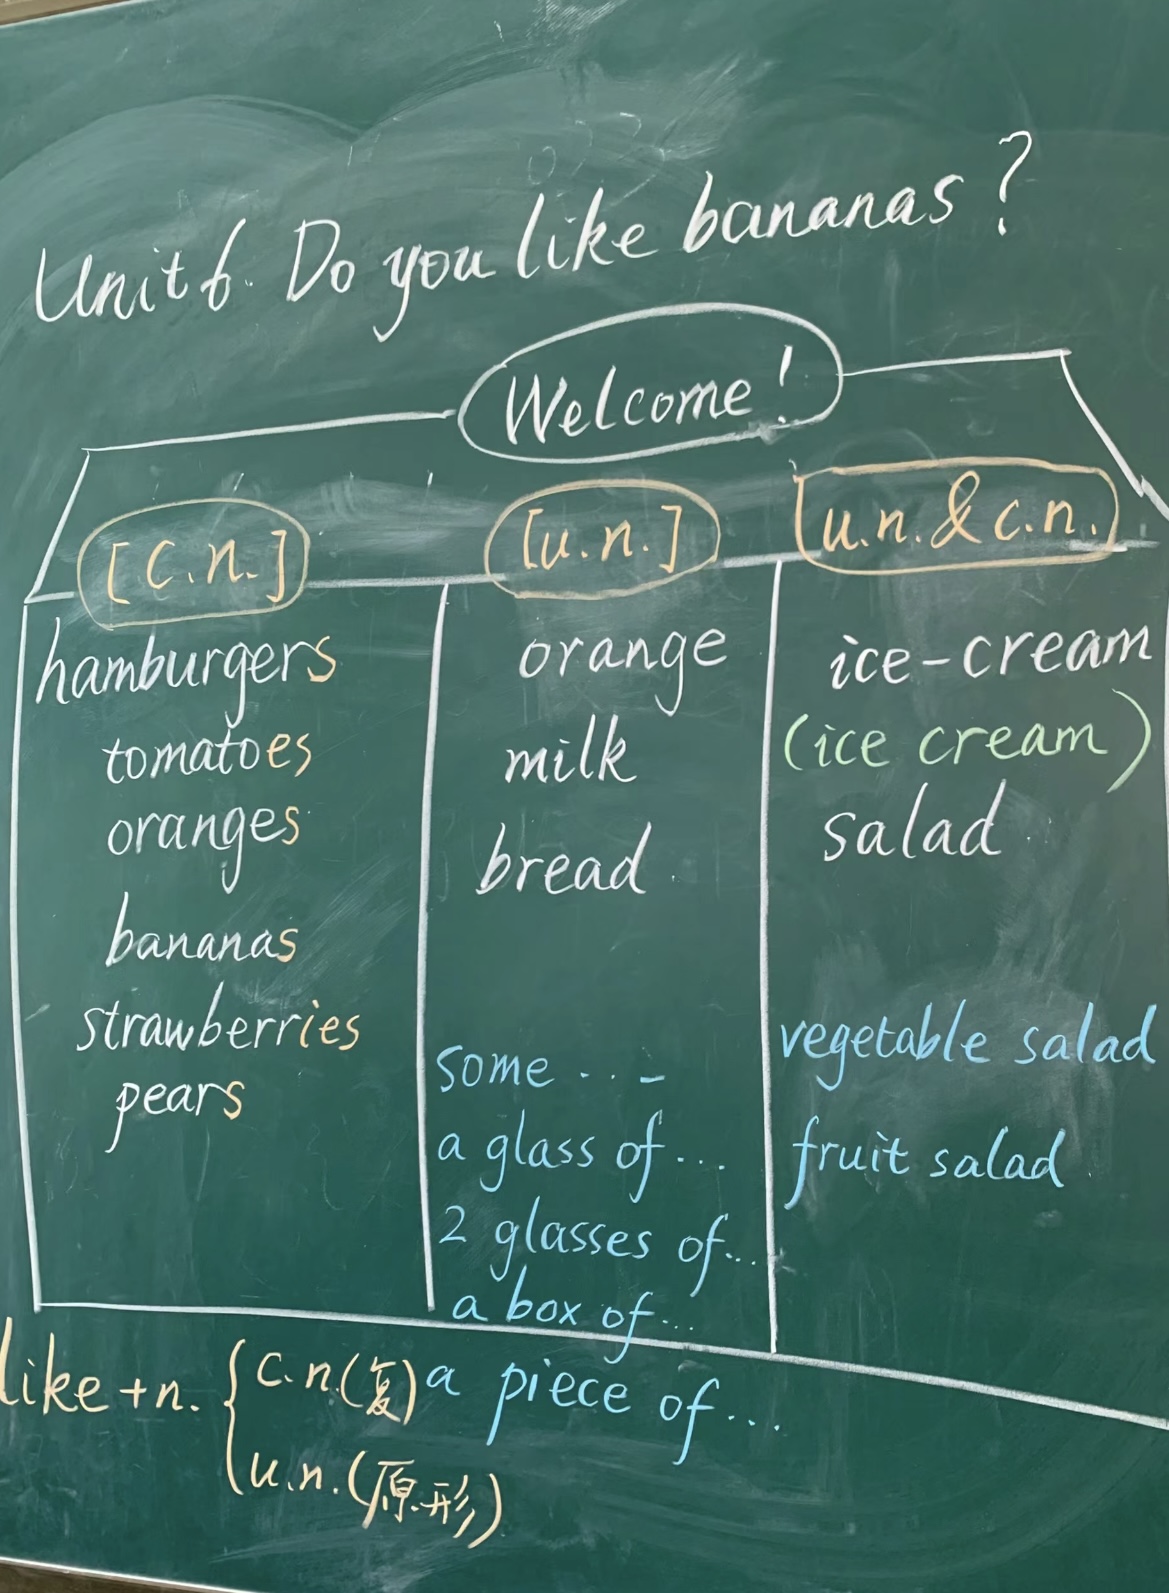 Unit 6. Do you like bananas?
Welcome!
[c.n.]
hamburgers
tomatoes
oranges
bananas
strawberries
pears
[u.n.]
orange
milk
bread
some ...
a glass of...
2 glasses of...
a box of...
a piece of...
[u.n. & c.n.]
ice-cream
(ice cream)
salad
vegetable salad
fruit salad
like + n. { c.n.(复)
u.n.(原形)